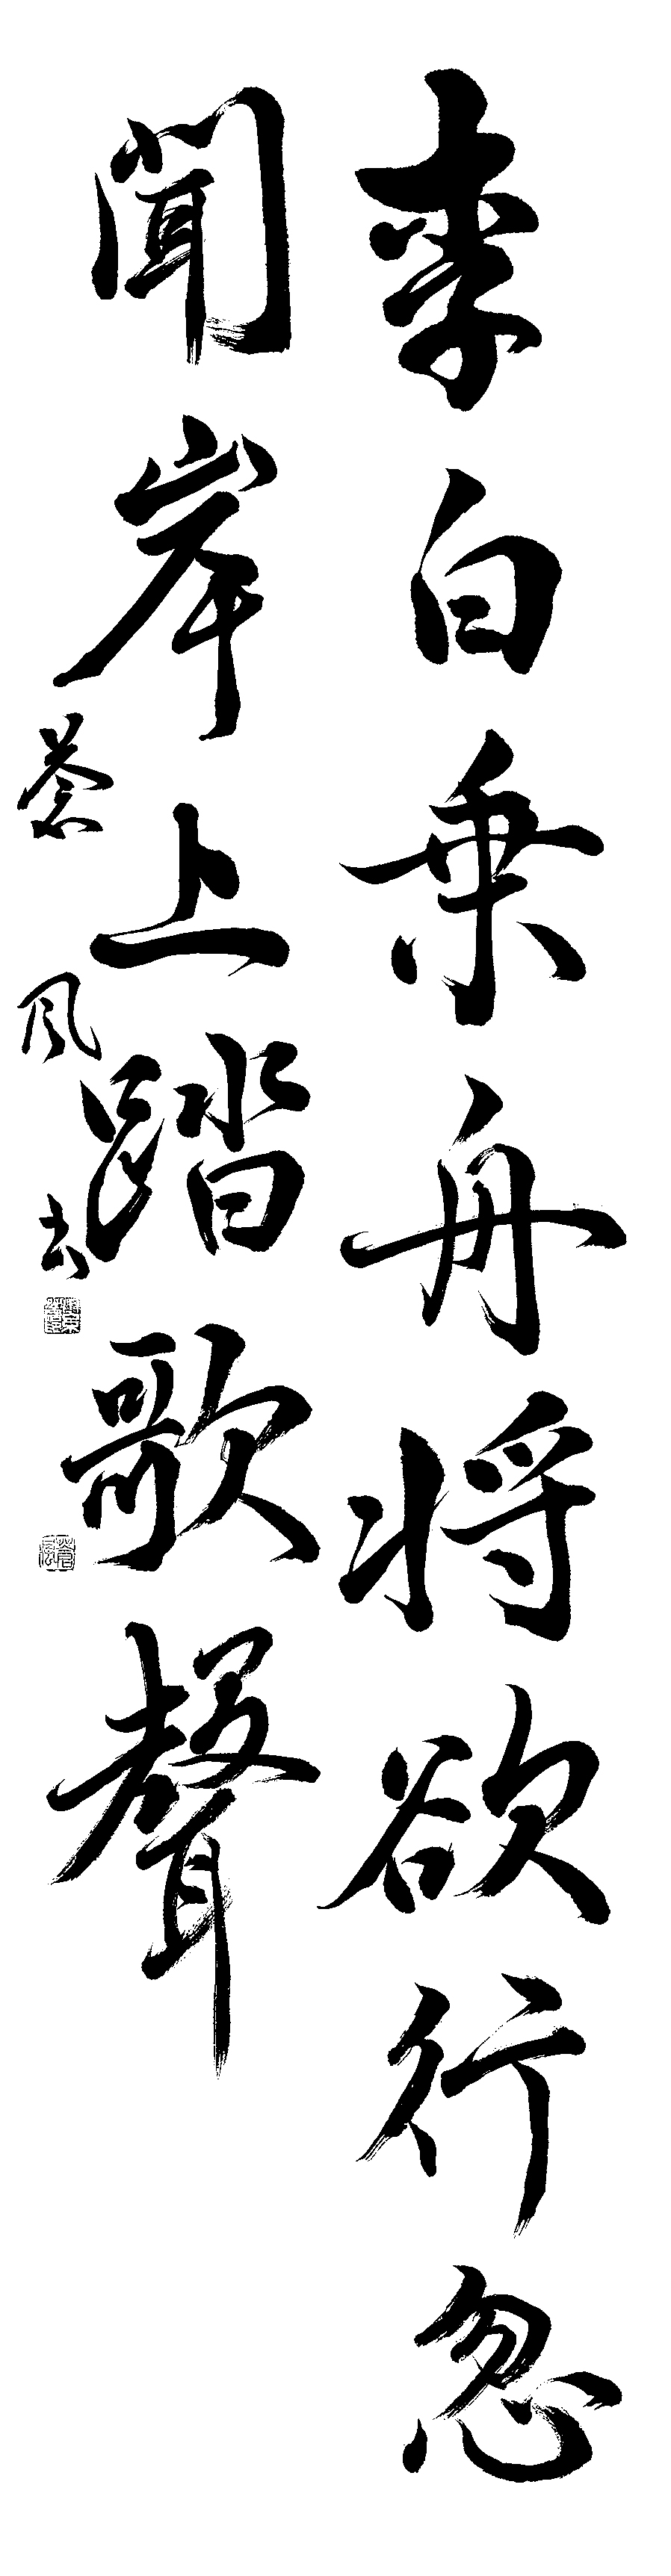 李白乗舟将欲行忽
聞岸上踏歌聲
蒼風書